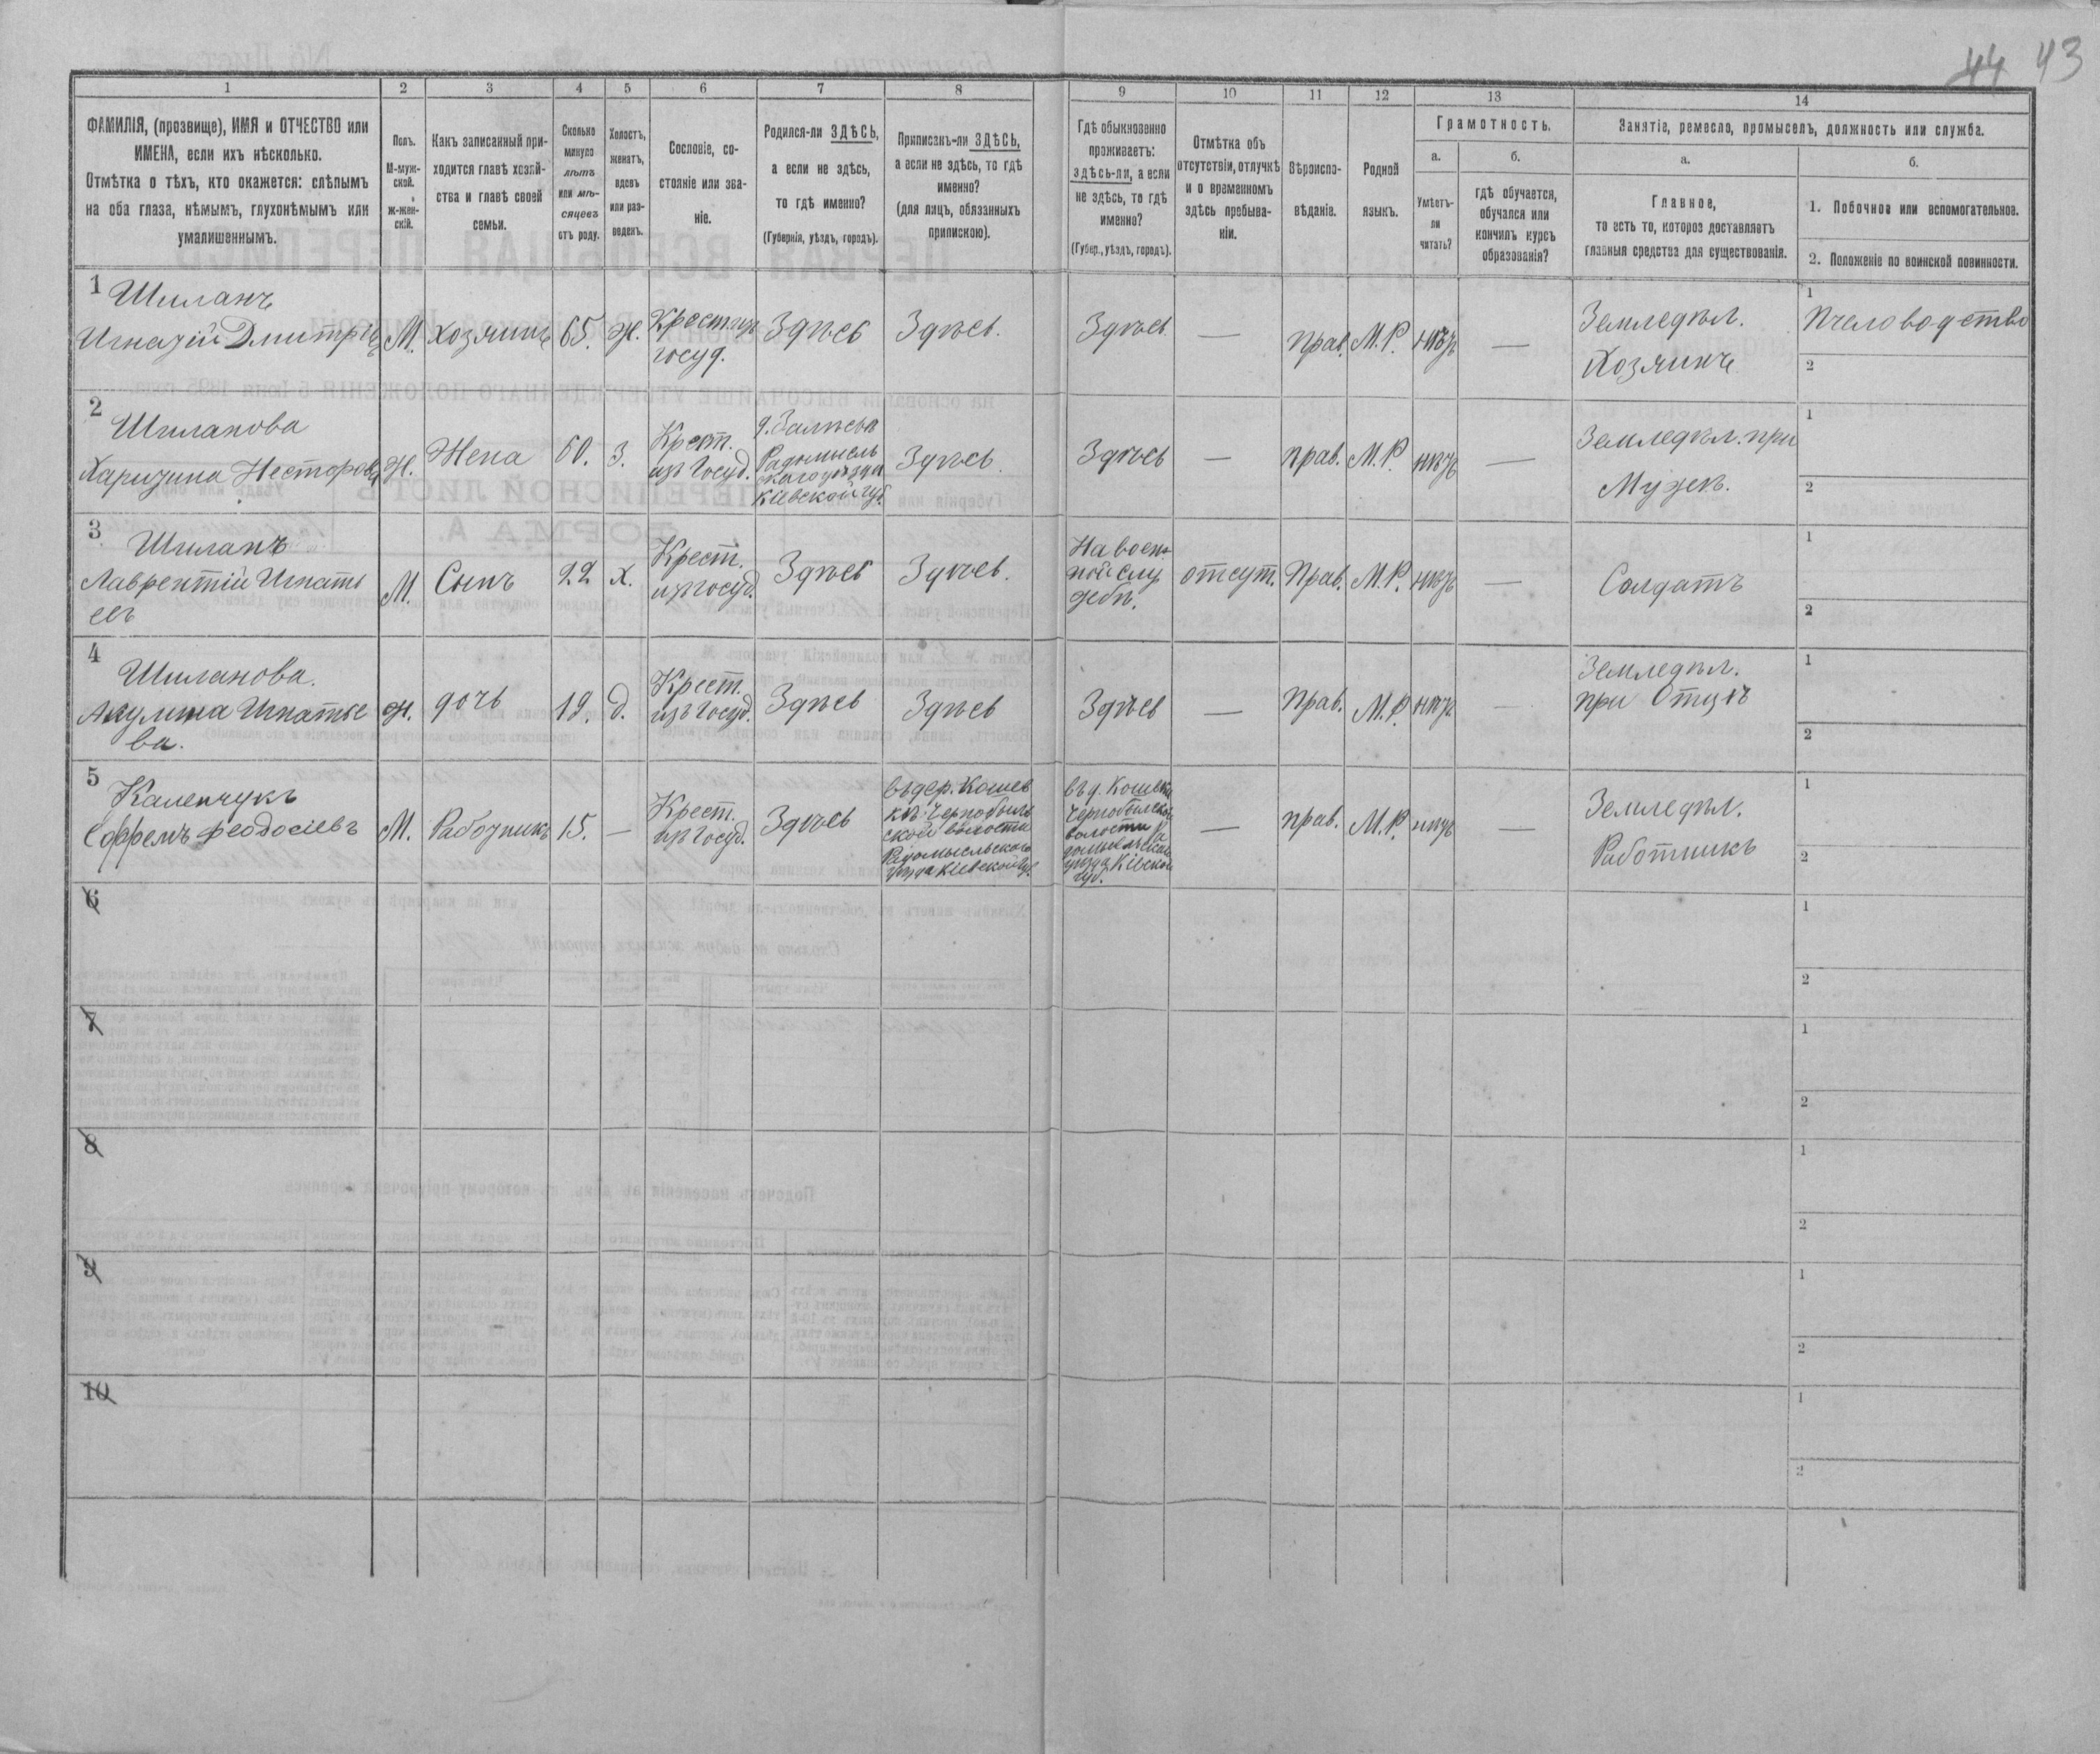 44 43
1 2 3 4 5 6 7 8 9 10 11 12 13 14
ФАМИЛІЯ, (прозвище), ИМЯ и ОТЧЕСТВО или
ИМЕНА, если ихъ нѣсколько.
Отмѣтка о тѣхъ, кто окажется: слѣпымъ
на оба глаза, нѣмымъ, глухонѣмымъ или
умалишеннымъ.
Полъ.
М-муж-
ской.
ж-жен-
скій.
Какъ записанный при-
ходится главѣ хозяй-
ства и главѣ своей
семьи.
Сколько
минуло
лѣтъ
или мѣ-
сяцевъ
отъ роду.
Холостъ,
женатъ,
вдовъ
или раз-
веденъ.
Сословіе, со-
стояніе или зва-
ніе.
Родился-ли ЗДѢСЬ,
а если не здѣсь,
то гдѣ именно?
(Губернія, уѣздъ, городъ).
Приписанъ-ли ЗДѢСЬ,
а если не здѣсь, то гдѣ
именно?
(для лицъ, обязанныхъ
припискою).
Гдѣ обыкновенно
проживаетъ:
здѣсь-ли, а если
не здѣсь, то гдѣ
именно?
(Губер., уѣздъ, городъ).
Отмѣтка объ
отсутствіи, отлучкѣ
и о временномъ
здѣсь пребыва-
ніи.
Вѣроиспо-
вѣданіе.
Родной
языкъ.
Грамотность.
а.
Умѣетъ-
ли
читать?
б.
гдѣ обучается,
обучался или
кончилъ курсъ
образованія?
Занятіе, ремесло, промыселъ, должность или служба.
а.
Главное,
то есть то, которое доставляетъ
главныя средства для существованія.
б.
1. Побочное или вспомогательное.
2. Положеніе по воинской повинности.
1
Шиланъ
Игнатій Дмитріевъ
М.
Хозяинъ
65.
Ж.
Крест. изъ
госуд.
Здѣсь
Здѣсь.
Здѣсь
—
прав.
М.Р.
нѣтъ
—
Земледѣл.
Хозяинъ
1
Пчеловодство
2
2
Шиланова
Харитина Несторова
Ж.
Жена
60.
З.
Крест.
изъ Госуд.
д. Залѣсья
Радомысль
скаго уѣзда
Кіевской губ.
Здѣсь.
Здѣсь
—
прав.
М.Р.
нѣтъ
—
Земледѣл. при
Мужѣ.
1
2
3
Шиланъ
Лаврентій Игнать
евъ
М.
Сынъ
22
Х.
Крест.
изъ госуд.
Здѣсь
Здѣсь.
На воен-
ной слу
жбѣ.
отсут.
Прав.
М.Р.
нѣтъ
—
Солдатъ
1
2
4
Шиланова.
Акулина Игнатье
ва.
Ж.
дочь
19.
д.
Крест.
изъ Госуд.
Здѣсь
Здѣсь
Здѣсь
—
Прав.
М.Р.
нѣтъ
—
Земледѣл.
при Отцѣ
1
2
5
Каленчукъ
Феодосіевъ
М.
Работникъ
15.
—
Крест.
изъ Госуд.
Здѣсь
въ дер. Кошев
кѣ Чернобыль
ской волости
Радомысльскаго
уѣзда Кіевской Губ.
въ д. Кошевкѣ
Чернобыльской
волости Ра
домысльскаго
уѣзда Кіевской
губ.
—
прав.
М.Р.
нѣтъ
—
Земледѣл.
Работникъ
1
2
6
1
2
7
1
2
8
1
2
9
1
2
10
1
2